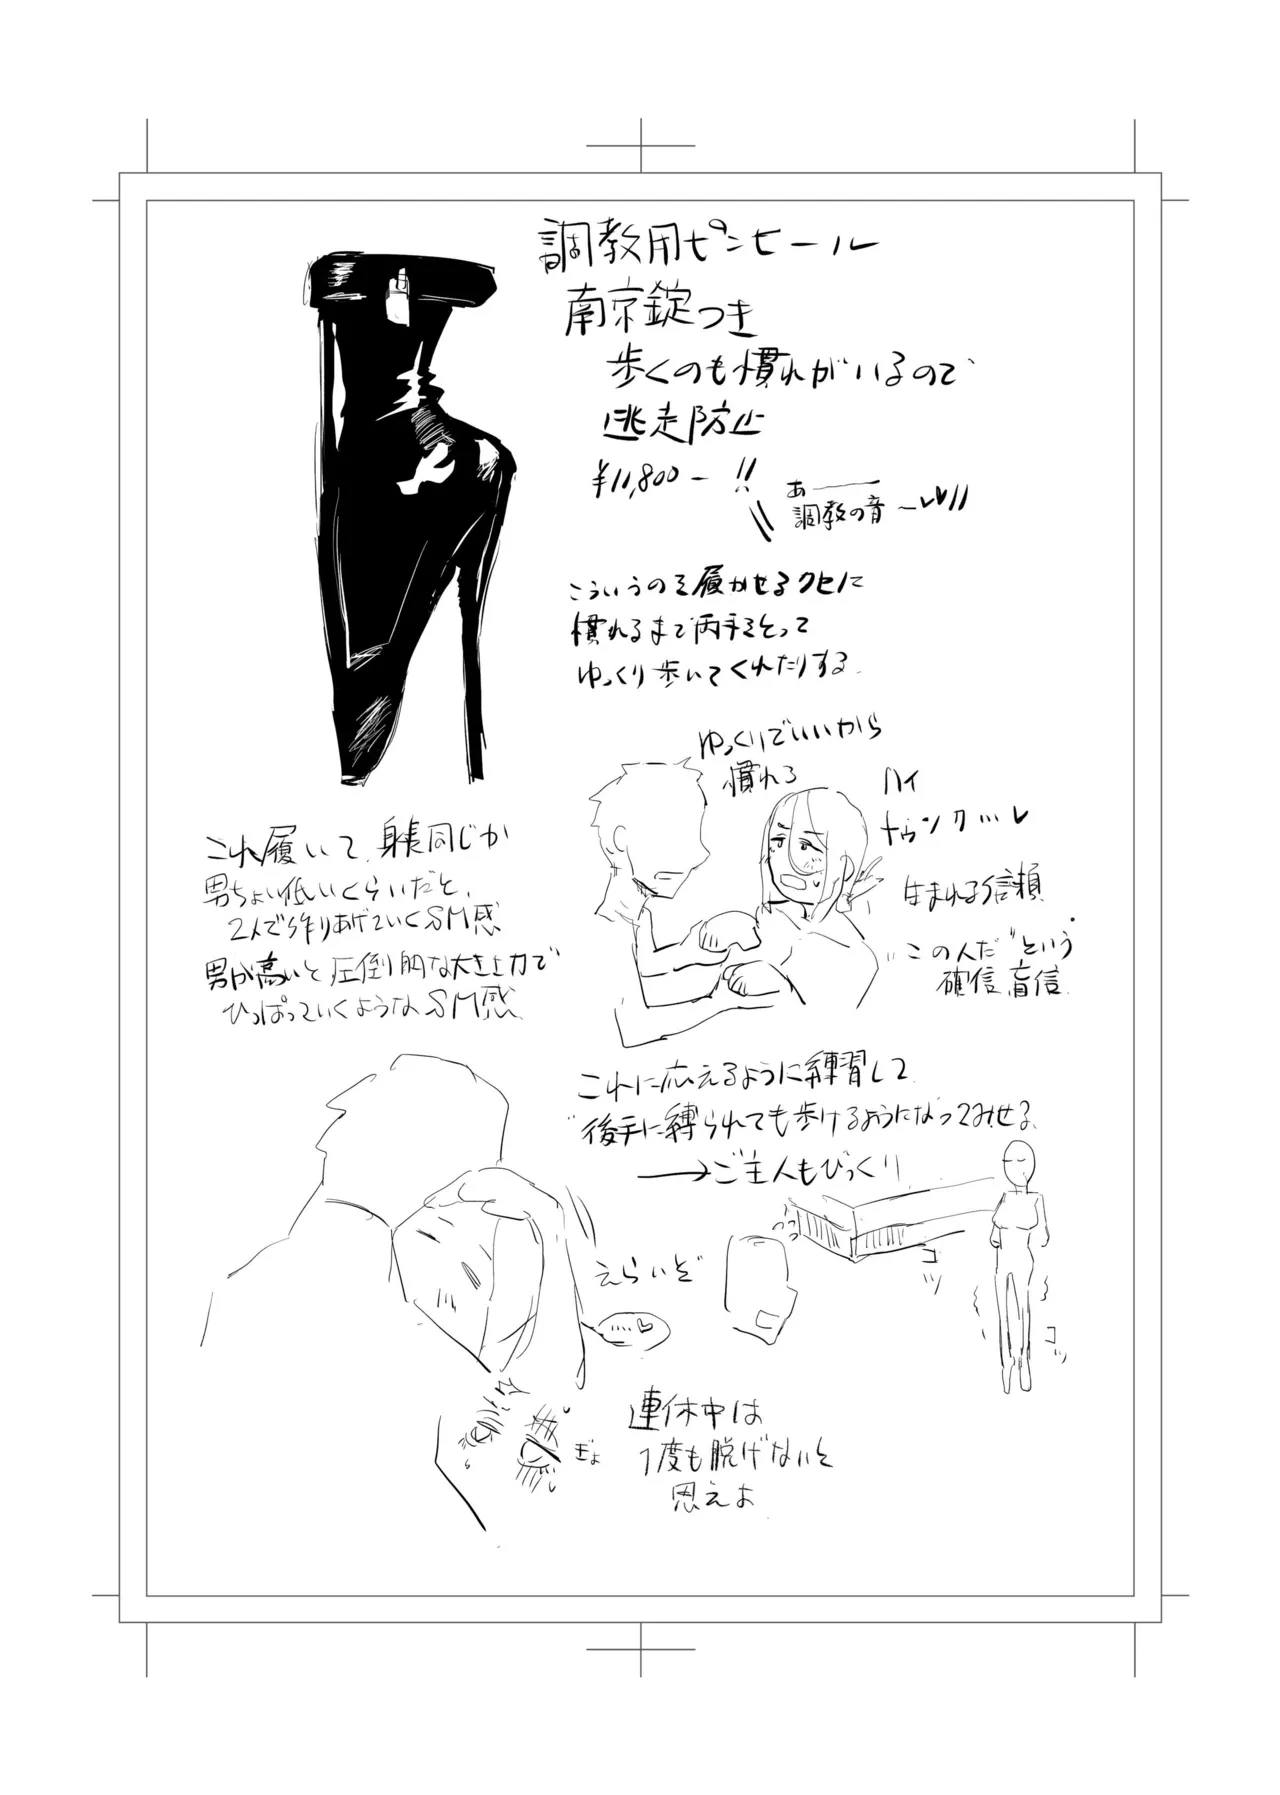 調教用ピンヒール
南京錠つき
歩くのも慣れがいるので
逃走防止
¥11,800-!!
あ――
調教の音〜♥♥!!
こういうのを履かせるクセに
慣れるまで両手をとって
ゆっくり歩いてくれたりする.
ゆっくりでいいから
慣れろ
ハイ
トゥンク…♥
生まれる信頼
"この人だ"という
確信、盲信.
これ履いて、身長同じか
男ちょい低いくらいだと、
2人で作りあげていくSM感
男が高いと圧倒的な大き上力で
ひっぱっていくようなSM感
これに応えるように練習して
後手に縛られても歩けるようになってみせる
→ご主人もびっくり
えらいぞ
....♥
コ
ツ
コ
ツ
ぎょ
連休中は
1度も脱げないと
思えよ